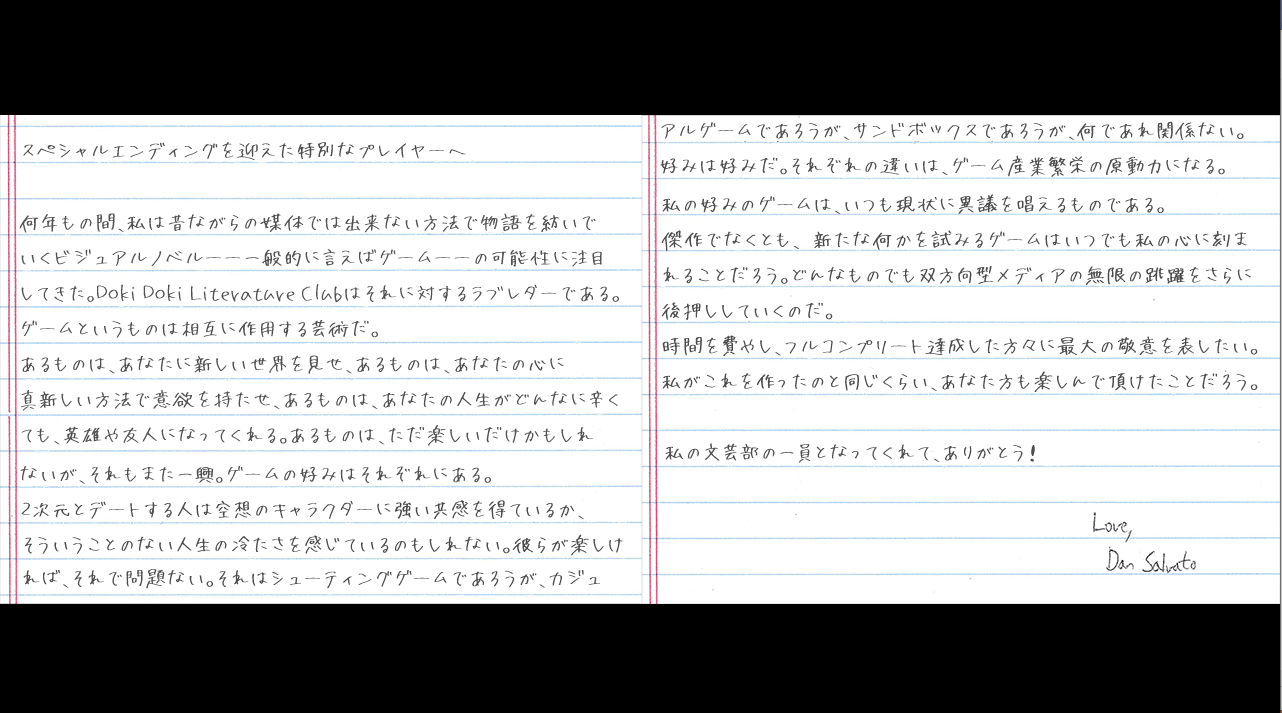 スペシャルエンディングを迎えた特別なプレイヤーへ
何年もの間、私は昔ながらの媒体では出来ない方法で物語を紡いで
いくビジュアルノベル———一般的に言えばゲーム——の可能性に注目
してきた。Doki Doki Literature Clubはそれに対するラブレターである。
ゲームというものは相互に作用する芸術だ。
あるものは、あなたに新しい世界を見せ、あるものは、あなたの心に
真新しい方法で意欲を持たせ、あるものは、あなたの人生がどんなに辛く
ても、英雄や友人になってくれる。あるものは、ただ楽しいだけかもしれ
ないが、それもまた一興。ゲームの好みはそれぞれにある。
2次元とデートする人は空想のキャラクターに強い共感を得ているか、
そういうことのない人生の冷たさを感じているのもしれない。彼らが楽しけ
れば、それで問題ない。それはシューティングゲームであろうが、カジュ
アルゲームであろうが、サンドボックスであろうが、何であれ関係ない。
好みは好みだ。それぞれの違いは、ゲーム産業繁栄の原動力になる。
私の好みのゲームは、いつも現状に異議を唱えるものである。
傑作でなくとも、新たな何かを試みるゲームはいつでも私の心に刻ま
れることだろう。どんなものでも双方向型メディアの無限の跳躍をさらに
後押ししていくのだ。
時間を費やし、フルコンプリート達成した方々に最大の敬意を表したい。
私がこれを作ったのと同じくらい、あなた方も楽しんで頂けたことだろう。
私の文芸部の一員となってくれて、ありがとう!
Love,
Dan Salvato